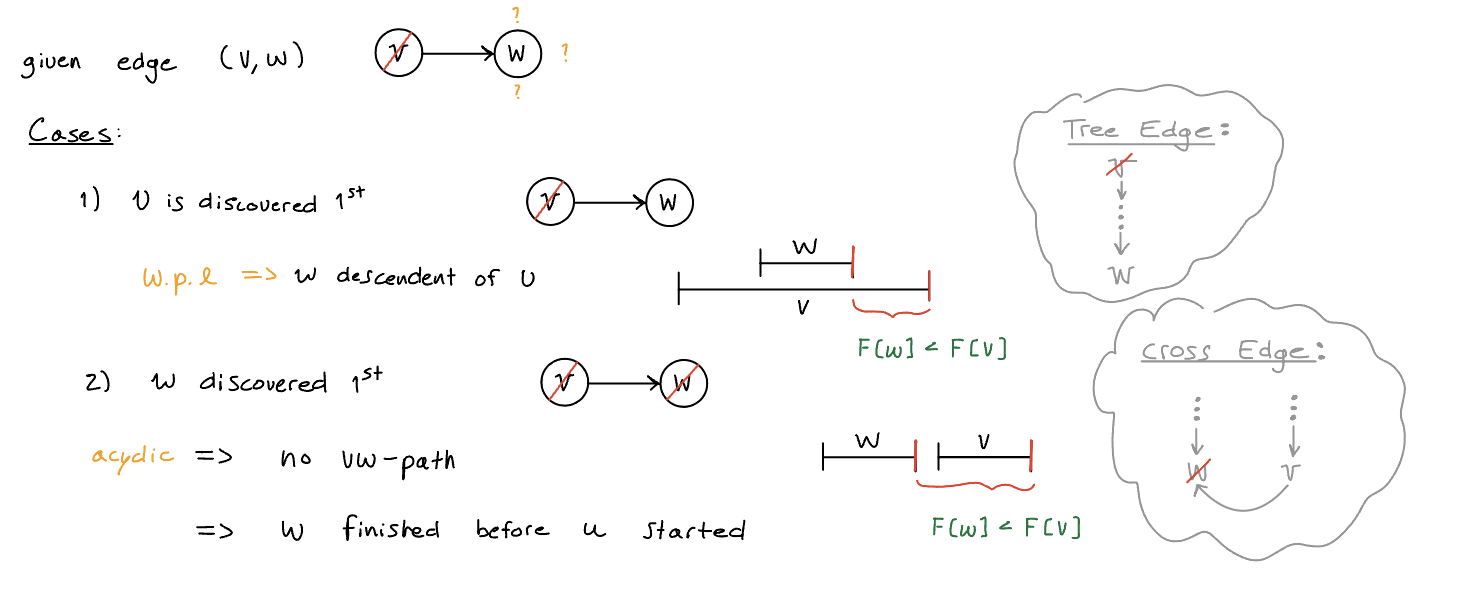 ?
given edge (v,w) v w ?
?
Cases:
1) v is discovered 1st v w
w.p.l => w descendent of v
w
v
F[w] < F[v]
Tree Edge:
v
w
2) w discovered 1st v w
acyclic => no vw-path
=> w finished before u started
w v
F[w] < F[v]
Cross Edge:
w v